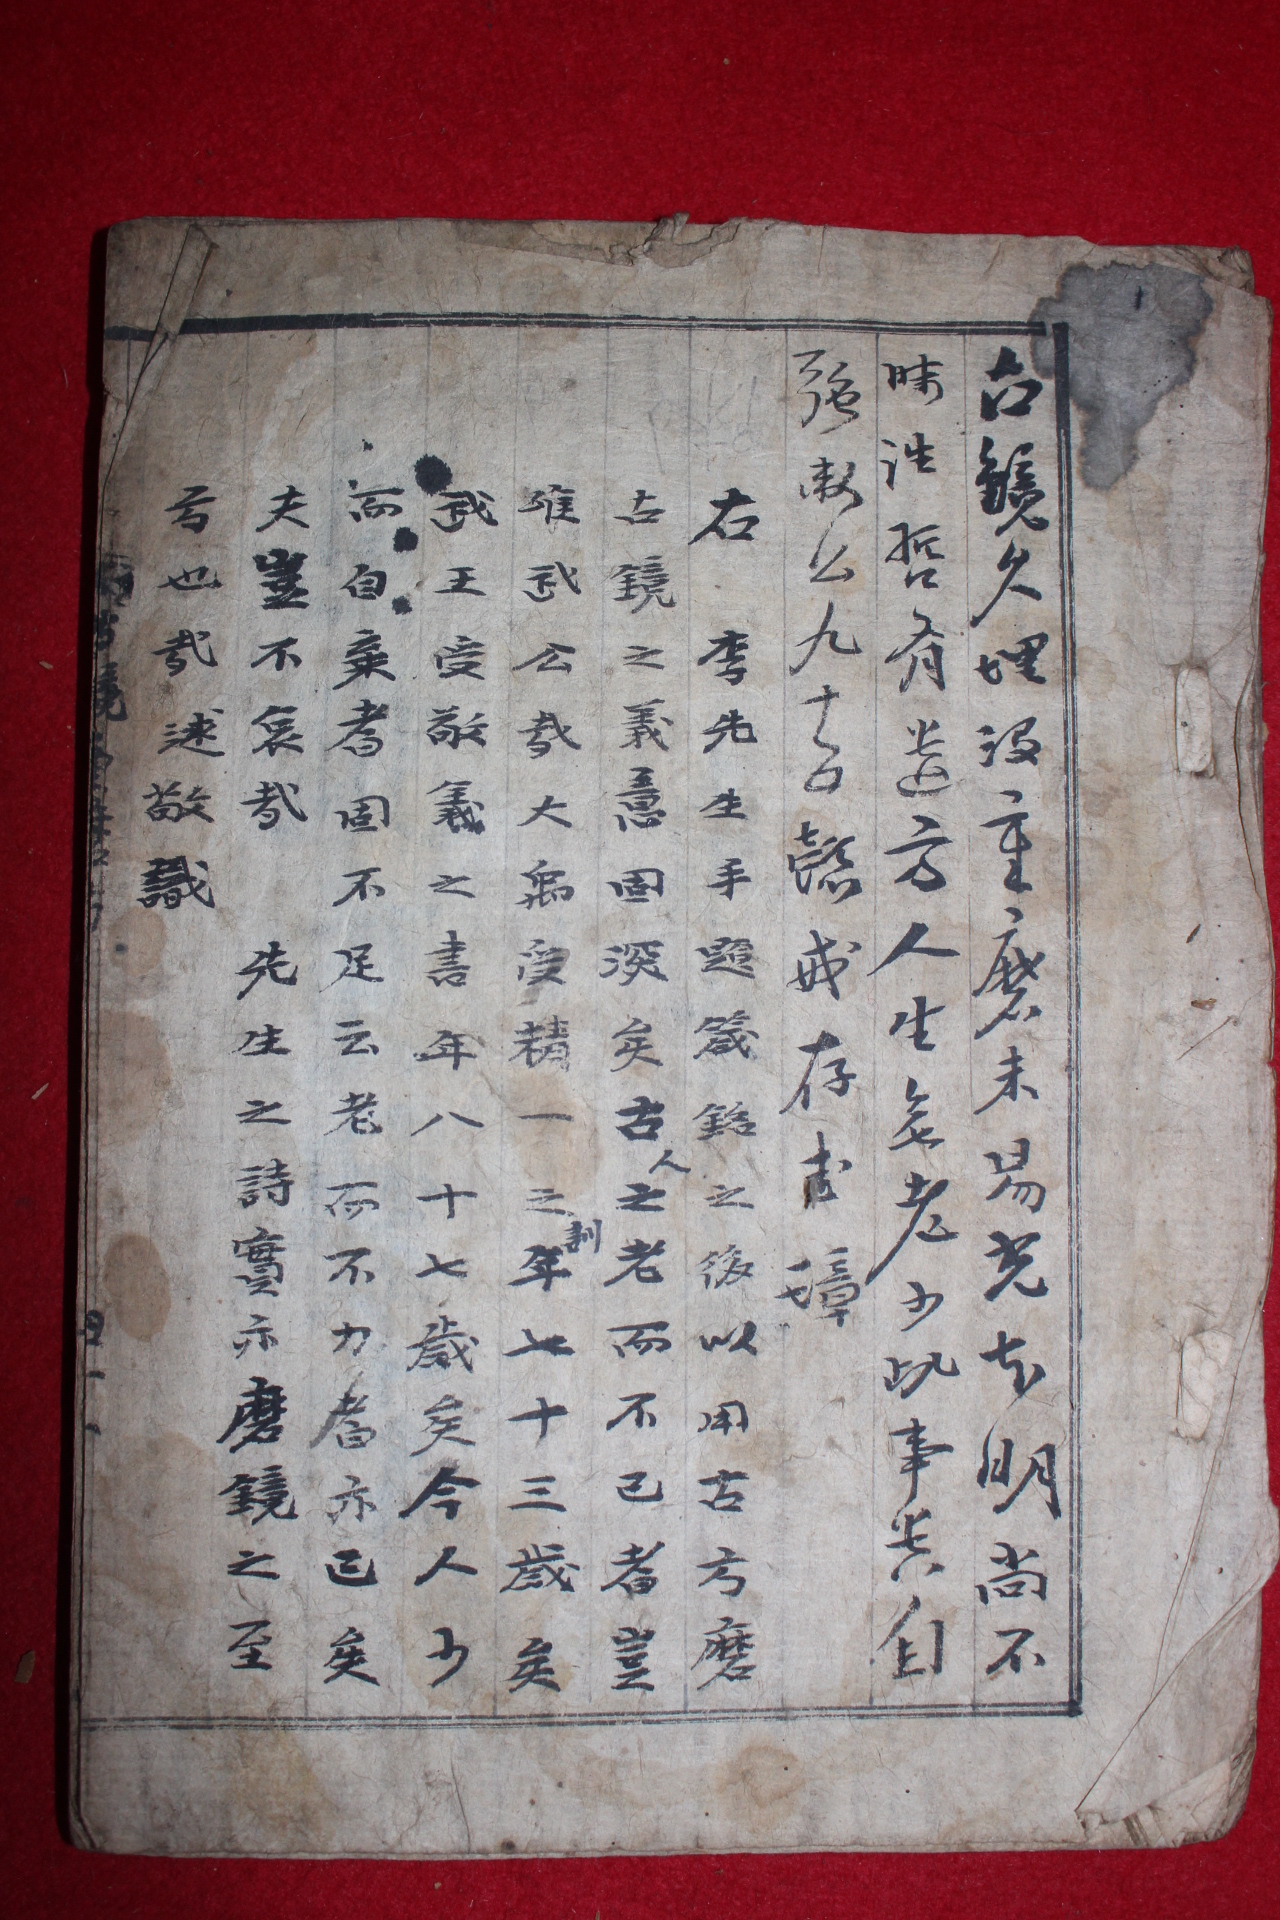 古鏡久埋沒重磨未易光本明尚不
昧往哲有遺方人生無老少此事貴自
強衛公九十五懿戒存圭璋
右 李先生手題箴銘之後以用古方磨
古鏡之義意固深矣古人之老而不已者豈
唯武公哉大禹受精一之訓年七十三歲矣
武王受敬義之書年八十七歲矣今人少
而自棄者固不足云老而不力者亦已矣
夫豈不哀哉 先生之詩實亦磨鏡之至
方也哉述敬識